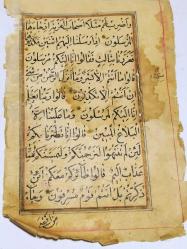 واضرب لهم مثلا اصحاب القرية اذ جاءها
المرسلون اذ ارسلنا اليهم اثنين فكذبوهما
فعززنا بثالث فقالوا انا اليكم مرسلون
قالوا ما انتم الا بشر مثلنا وما انزل الرحمن
من شيء ان انتم الا تكذبون قالوا ربنا يعلم
انا اليكم لمرسلون وما علينا الا
البلاغ المبين قالوا انا تطيرنا بكم
لئن لم تنتهوا لنرجمنكم وليمسنكم منا
عذاب اليم قالوا طائركم معكم ائن
ذكرتم بل انتم قوم مسرفون وجاء